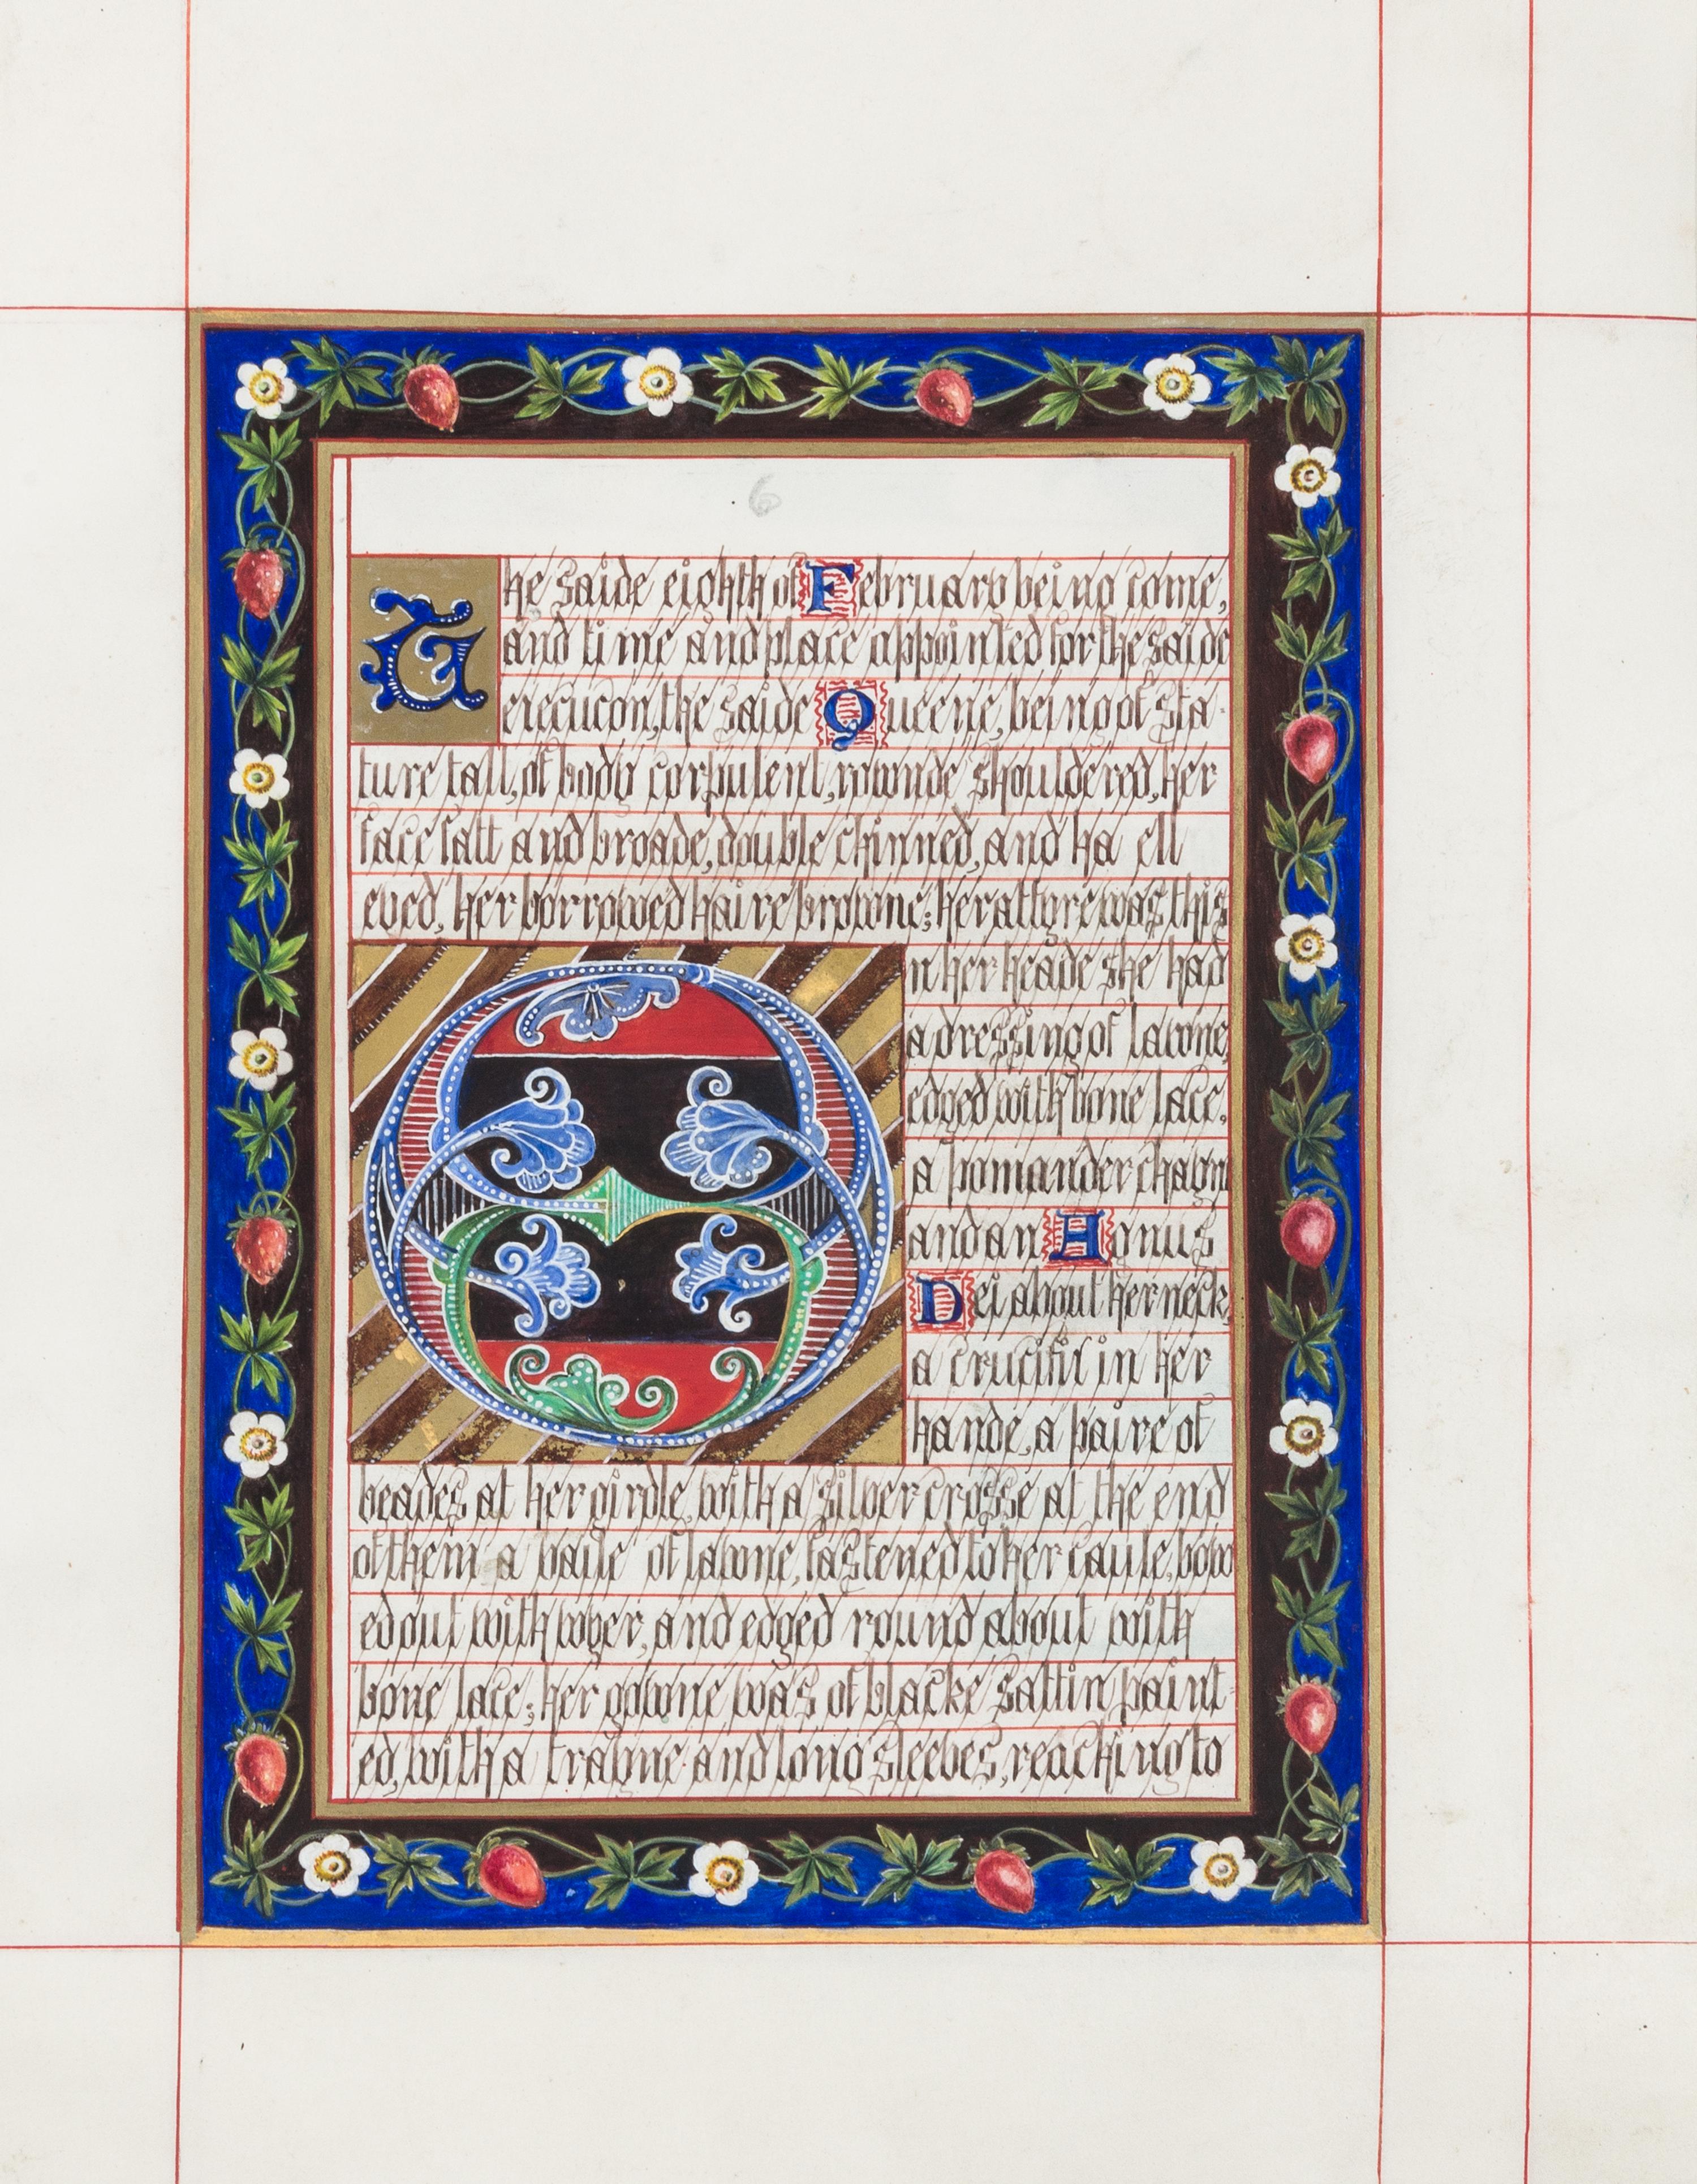 6
The saide eighth of February being come,
and time and place appointed for the saide
execucon, the saide Queene, being of sta-
ture tall, of body corpulent, rownde shouldered, her
face fatt and broade, double chinned, and ha ell
eyed, her borrowed haire browne; her attyre was this
On her heade she had
a dressing of lawne
edged with bone lace,
a pomander chayn
and an Agnus
Dei about her neck,
a crucifix in her
hande, a paire of
beades at her girdle, with a silver crosse at the end
of them a vaile of lawne, fastened to her caule, bow
ed out with wyer, and edged round about with
bone lace; her gowne was of blacke sattin paint-
ed, with a trayne and long sleeves, reaching to